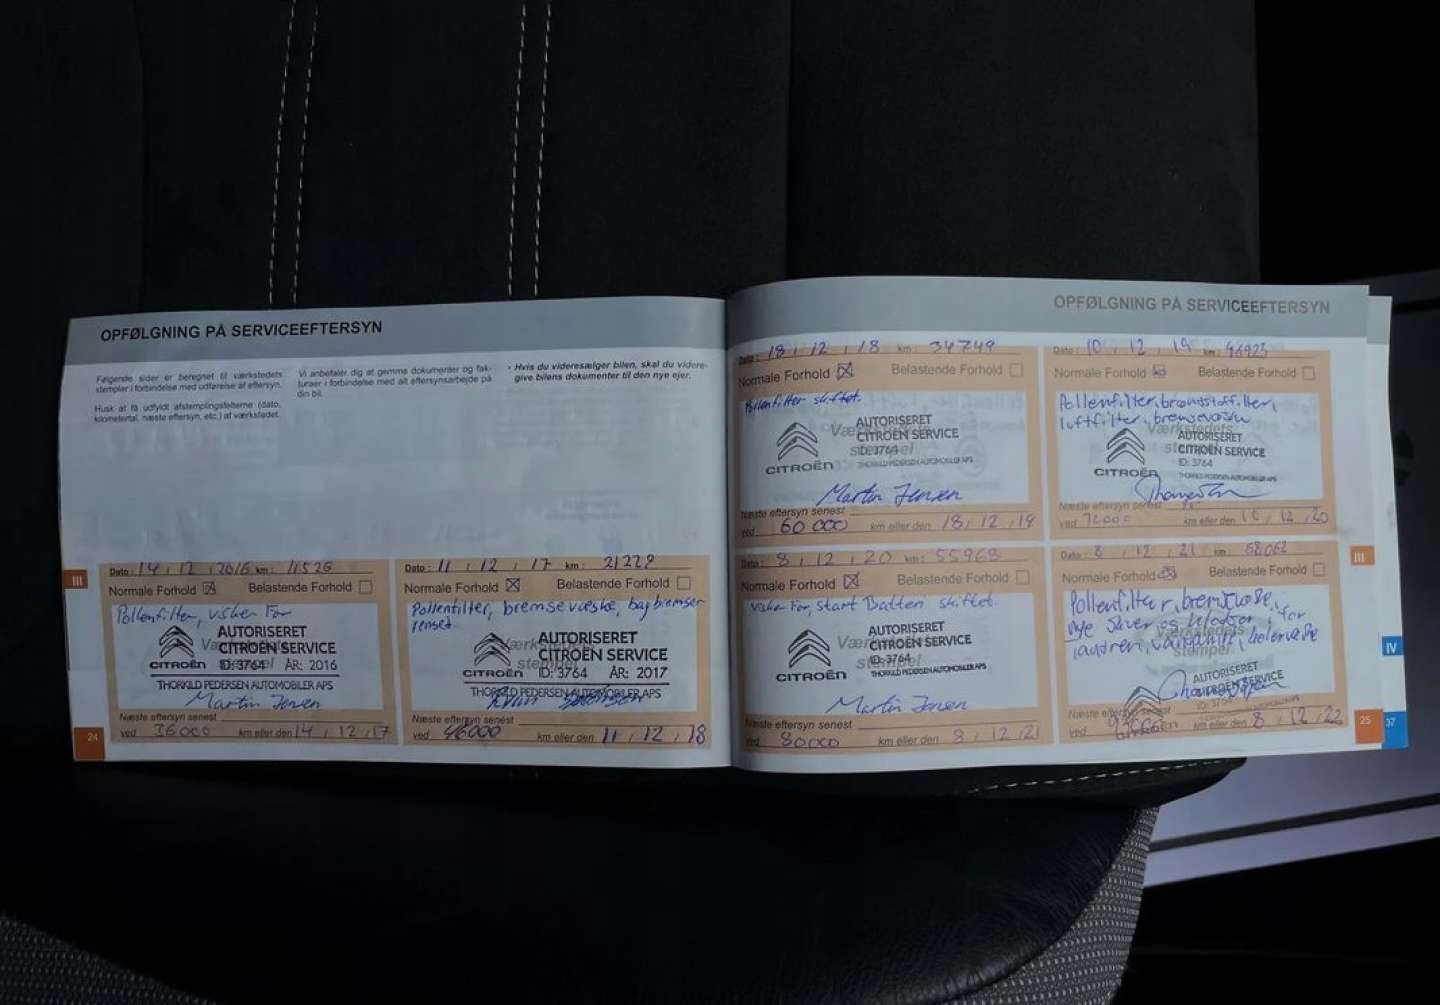 OPFØLGNING PÅ SERVICEEFTERSYN
Følgende sider er beregnet til værkstedets
stempler i forbindelse med udførelse af eftersyn.
Husk at få udfyldt afstemplingsfelterne (dato,
kilometertal, næste eftersyn, etc.) af værkstedet.
Vi anbefaler dig at gemme dokumenter og fak-
turaer i forbindelse med alt eftersynsarbejde på
din bil.
- Hvis du videresælger bilen, skal du videre-
give bilens dokumenter til den nye ejer.
Dato : 14 , 12 , 2016 km : 11526
Normale Forhold ☒ Belastende Forhold ☐
Pollenfilter, visker For
Værkstedets
stempel
CITROËN
AUTORISERET
CITROËN SERVICE
ID: 3764 ÅR: 2016
THORKILD PEDERSEN AUTOMOBILER APS
Martin Jensen
Næste eftersyn senest
ved 36000 km eller den 14 , 12 , 17
Dato : 11 , 12 , 17 km : 21228
Normale Forhold ☒ Belastende Forhold ☐
Pollenfilter, bremsevæske, bagbremser
renset.
Værkstedets
stempel
CITROËN
AUTORISERET
CITROËN SERVICE
ID: 3764 ÅR: 2017
THORKILD PEDERSEN AUTOMOBILER APS
Næste eftersyn senest
ved 46000 km eller den 11 , 12 , 18
24
III
OPFØLGNING PÅ SERVICEEFTERSYN
Dato : 18 , 12 , 18 km : 34749
Normale Forhold ☒ Belastende Forhold ☐
Pollenfilter skiftet.
Værkstedets
stempel
CITROËN
AUTORISERET
CITROËN SERVICE
ID: 3764
THORKILD PEDERSEN AUTOMOBILER APS
Martin Jensen
Næste eftersyn senest
ved 60000 km eller den 18 , 12 , 19
Dato : 10 , 12 , 19 km : 46923
Normale Forhold ☒ Belastende Forhold ☐
Pollenfilter, brændstoffilter,
luftfilter, bremsevæske
Værkstedets
stempel
CITROËN
AUTORISERET
CITROËN SERVICE
ID: 3764
THORKILD PEDERSEN AUTOMOBILER APS
Næste eftersyn senest
ved 72000 km eller den 10 , 12 , 20
Dato : 8 , 12 , 20 km : 55968
Normale Forhold ☒ Belastende Forhold ☐
Visker For, start Batteri skiftet.
Værkstedets
stempel
CITROËN
AUTORISERET
CITROËN SERVICE
ID: 3764
THORKILD PEDERSEN AUTOMOBILER APS
Martin Jensen
Næste eftersyn senest
ved 80000 km eller den 8 , 12 , 21
Dato : 8 , 12 , 21 km : 68062
Normale Forhold ☒ Belastende Forhold ☐
Pollenfilter, bremsevæske,
nye skiver og klodser, for
Værkstedets
AUTORISERET
CITROËN SERVICE
ID: 3764
CITROËN
Næste eftersyn senest
ved km eller den 8 , 12 , 22
III
IV
25
37